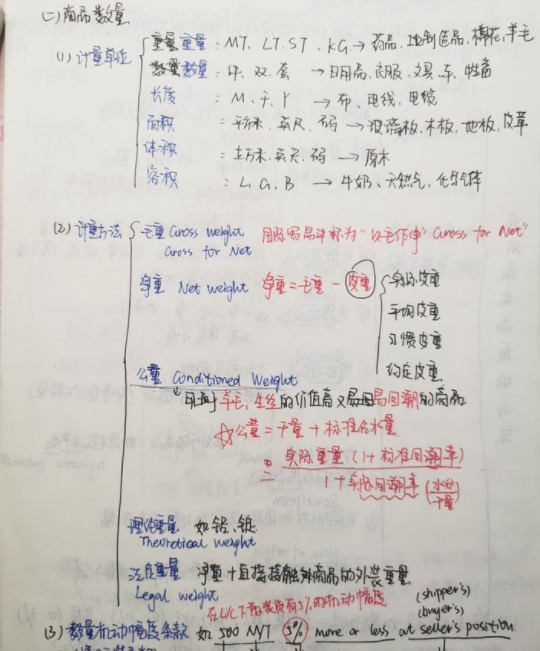 (二) 商品数量
(1) 计量单位
重量 : MT. LT. ST. KG. → 药品、棉花、羊毛
数量 : 件. 双. 套 → 日用品、衣服、文具、车、牲畜
长度 : M. Y → 布、电线、电缆
面积 : 平方米. 英尺. 码 → 玻璃板、木板、地板、皮革
体积 : 立方米. 英尺. 码 → 原木
容积 : L. G. B → 牛奶、天然气、化学气体
(2) 计重方法
毛重 Gross weight 国际贸易中称为"以毛作净" Gross for Net"
Gross for Net
净重 Net weight 净重 = 毛重 - 皮重
实际皮重
平均皮重
习惯皮重
约定皮重
公量 Conditioned Weight
用于羊毛、生丝的价值高又易回潮的商品
☆公量 = 干量 + 标准含水量
= 实际重量 (1 + 标准回潮率)
1 + 实际回潮率 (水分/干量)
理论重量 如 铝、
Theoretical weight
法定重量 净重 + 直接接触商品的外装重量
Legal weight
在L/C下散装货有5%的机动幅度
(shipper's)
(buyer's)
(3) 数量机动幅度条款 如 500 M/T 5% more or less at seller's position